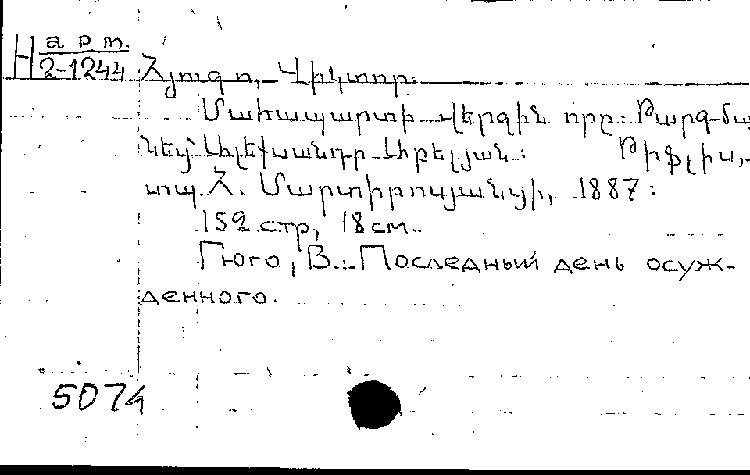 Н арт. 2-1244 Հյուգո, Վիկտոր.
Մահապարտի վերջին օրը: Թարգմա
նեց Ալեքսանդր Աբելյան: Թիֆլիս,
տպ. Հ. Մարտիրոսյանցի, 1887:
152 стр, 18 см.
Гюго, В. Последный день осуж-
денного.
5074